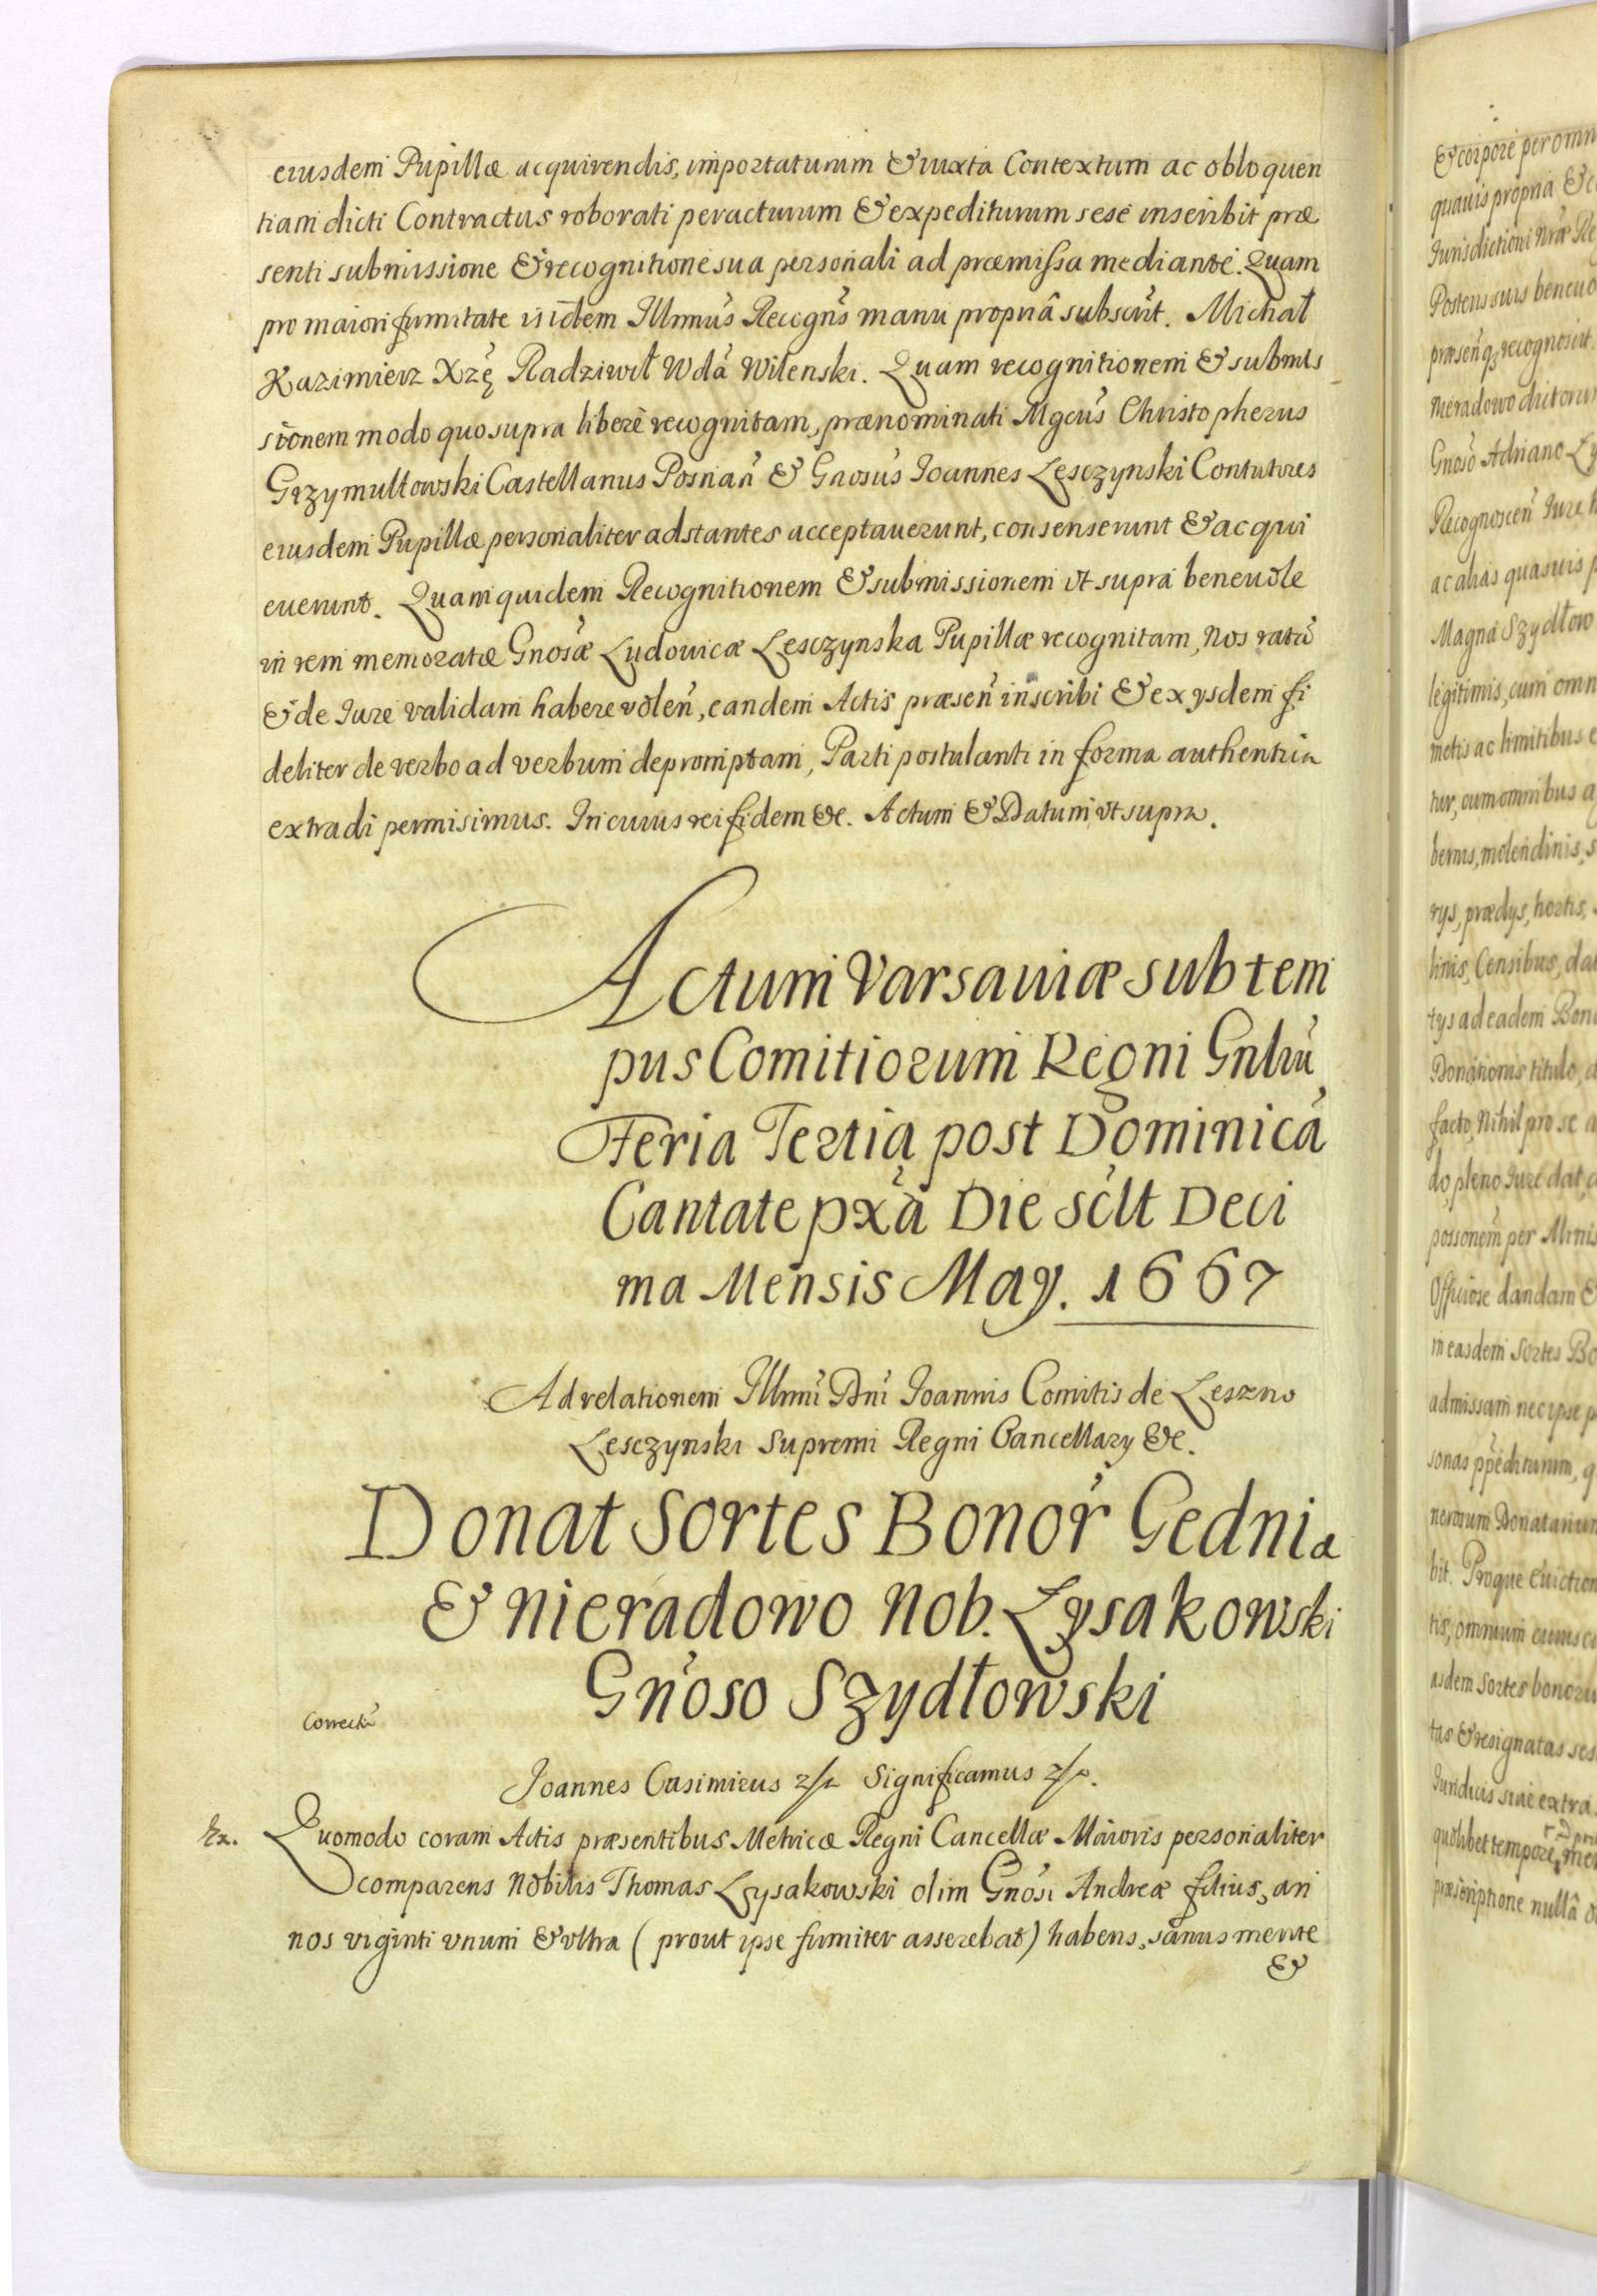 eiusdem Pupillæ acquirendis, importaturum & iuxta Contextum ac obloquen
tiam dicti Contractus roborati peracturum & expediturum sese inscribit præ
senti submissione & recognitione sua personali ad præmissa mediante. Quam
pro maiori firmitate ijdem Illmus Recogns manu propriâ subscrit. Michał
Kazimierz Xzę Radziwił Wda Wilenski. Quam recognitionem & submis
sionem modo quo supra liberè recognitam, prænominati Mgcus Christopherus
Grzymułtowski Castellanus Posnań & Gnosus Joannes Lesczynski Contutores
eiusdem Pupillæ personaliter adstantes acceptauerunt, consenserunt & acqui
euerunt. Quam quidem Recognitionem & submissionem vt supra beneuole
in rem memoratæ Gnosæ Ludouicæ Lesczynska Pupillæ recognitam, nos ratū
& de Jure validam habere volen, eandem Actis præsen inscribi & ex ysdem fi
deliter de verbo ad verbum depromptam, Parti postulanti in forma authentica
extradi permisimus. In cuius rei fidem &c. Actum & Datum vt supra.
Actum Varsauiæ sub tem
pus Comitiorum Regni Gnliū
Feria Tertia post Dominicā
Cantate pxa Die sclt Deci
ma Mensis May. 1667
Ad relationem Illmi Dni Joannis Comitis de Leszno
Lesczynski Supremi Regni Cancellary &c.
Donat Sortes Bonor Gednia
& Nieradowo Nob. Lysakowski
Gnoso Szydłowski
Correctū
Joannes Casimirus Significamus
Quomodo coram Actis præsentibus Metricæ Regni Cancellæ Maioris personaliter
comparens Nobilis Thomas Lysakowski olim Gnosi Andreæ filius, an
nos viginti vnum & vltra (prout ipse firmiter asserebat) habens, sanus mente
&
& corpore per omn
quauis propria &
Jurisdictioni Nræ Re
Posteris suis beneuo
præsen qz recognouit
Nieradowo dictoru
Gnoso Adriano Ly
Recognoscen Jure h
ac alias quasuis p
Magna Szydłow
legitimis, cum omn
metis ac limitibus e
tur, cum omnibus a
bernis, molendinis, s
rys, prædys, hortis,
linis, Censibus, da
tys ad eadem Bon
Donationis titulo, d
facto, Nihil pro se a
do, pleno Jure dat,
possonem per Minis
Officiose dandam &
in easdem Sortes Bo
admissam nec ipse p
sonas ppediturum, q
nerosum Donatarium
bit. Proque Euiction
tis, omnium cuiusc
asdem Sortes bonoru
tas & resignatas ses
Juridicis siue extra
quolibet tempore, me
præscriptione nullâ